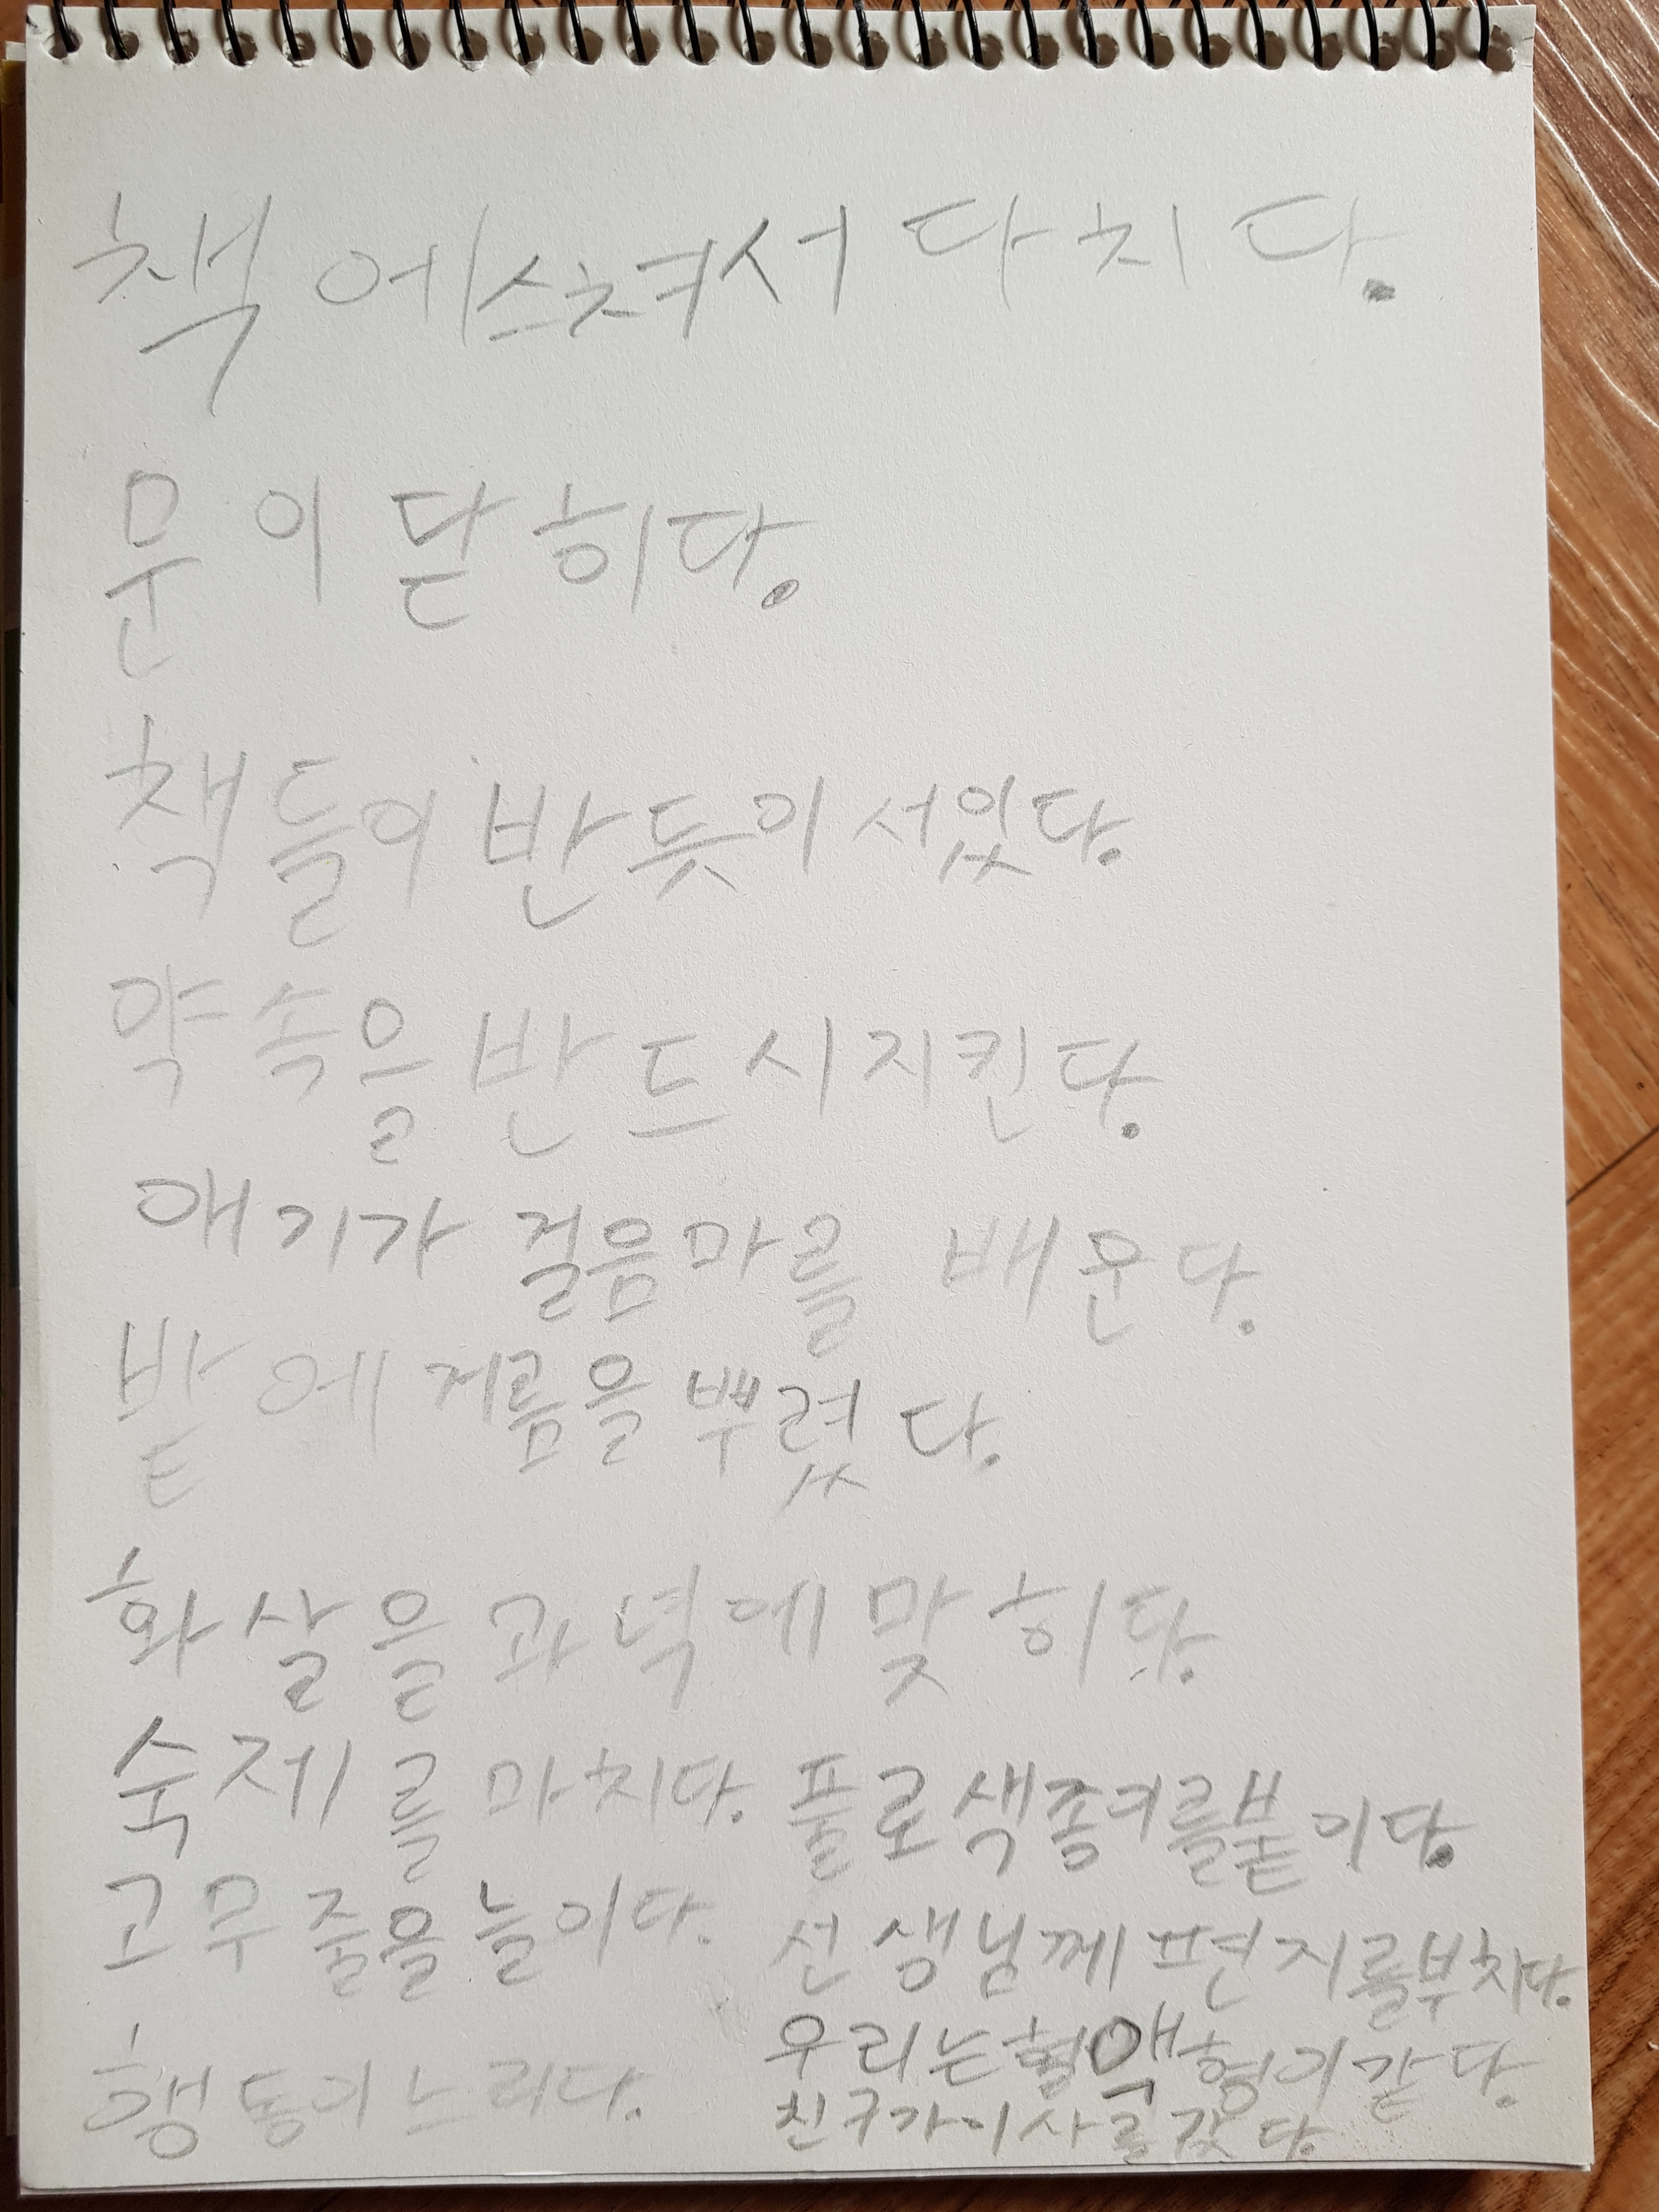 책에스쳐서 다치다.
문이 닫히다.
책들이 반듯이 서있다.
약속을 반드시지킨다.
애기가 걸음마를 배운다.
밭에 거름을 뿌렸다.
화살을 과녁에 맞히다.
숙제를 마치다. 풀로 색종이를붙이다.
고무줄을 늘이다. 선생님께 편지를부치다.
행동이느리다. 우리는혈액형이같다.
친구가이사를갔다.